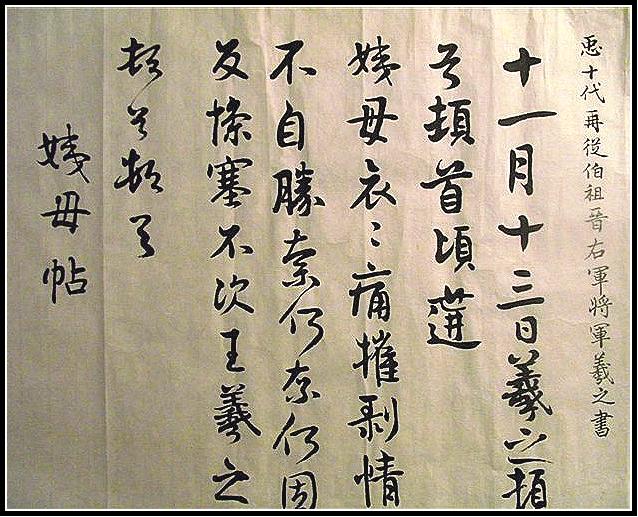 𢘑十代再從伯祖晉右軍將軍羲之書
十一月十三日羲之頓
首頓首頃遘
姨母哀〻痛摧剝情
不自勝奈何奈何因
反慘塞不次王羲之
頓首頓首
姨母帖